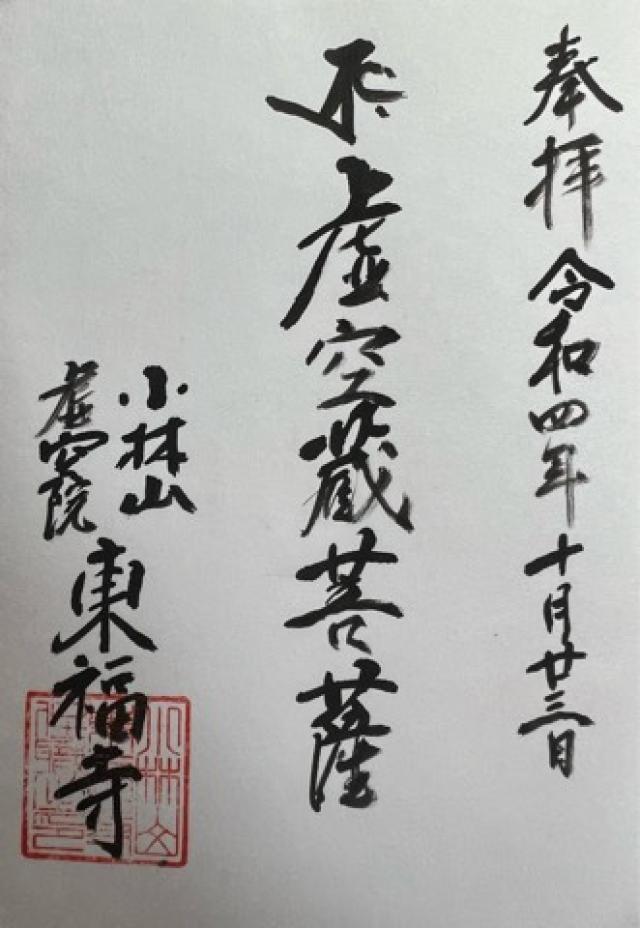 奉拝 令和四年十月廿三日
虚空蔵菩薩
小林山
虚空院
東福寺